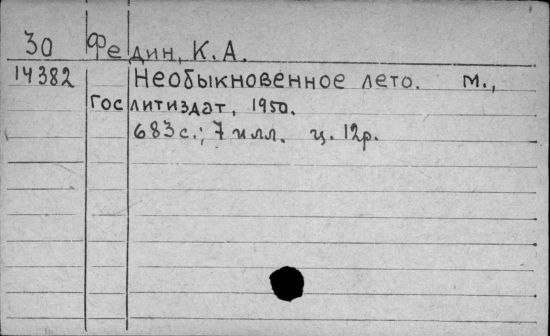 30 Федин, К. А.
14382 Необыкновенное лето. М.,
Гослитиздат, 1950.
683 с.; 7 илл. ц. 12р.